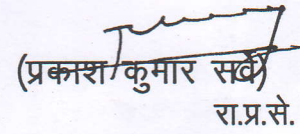 (प्रकाश कुमार सर्वे)
रा.प्र.से.